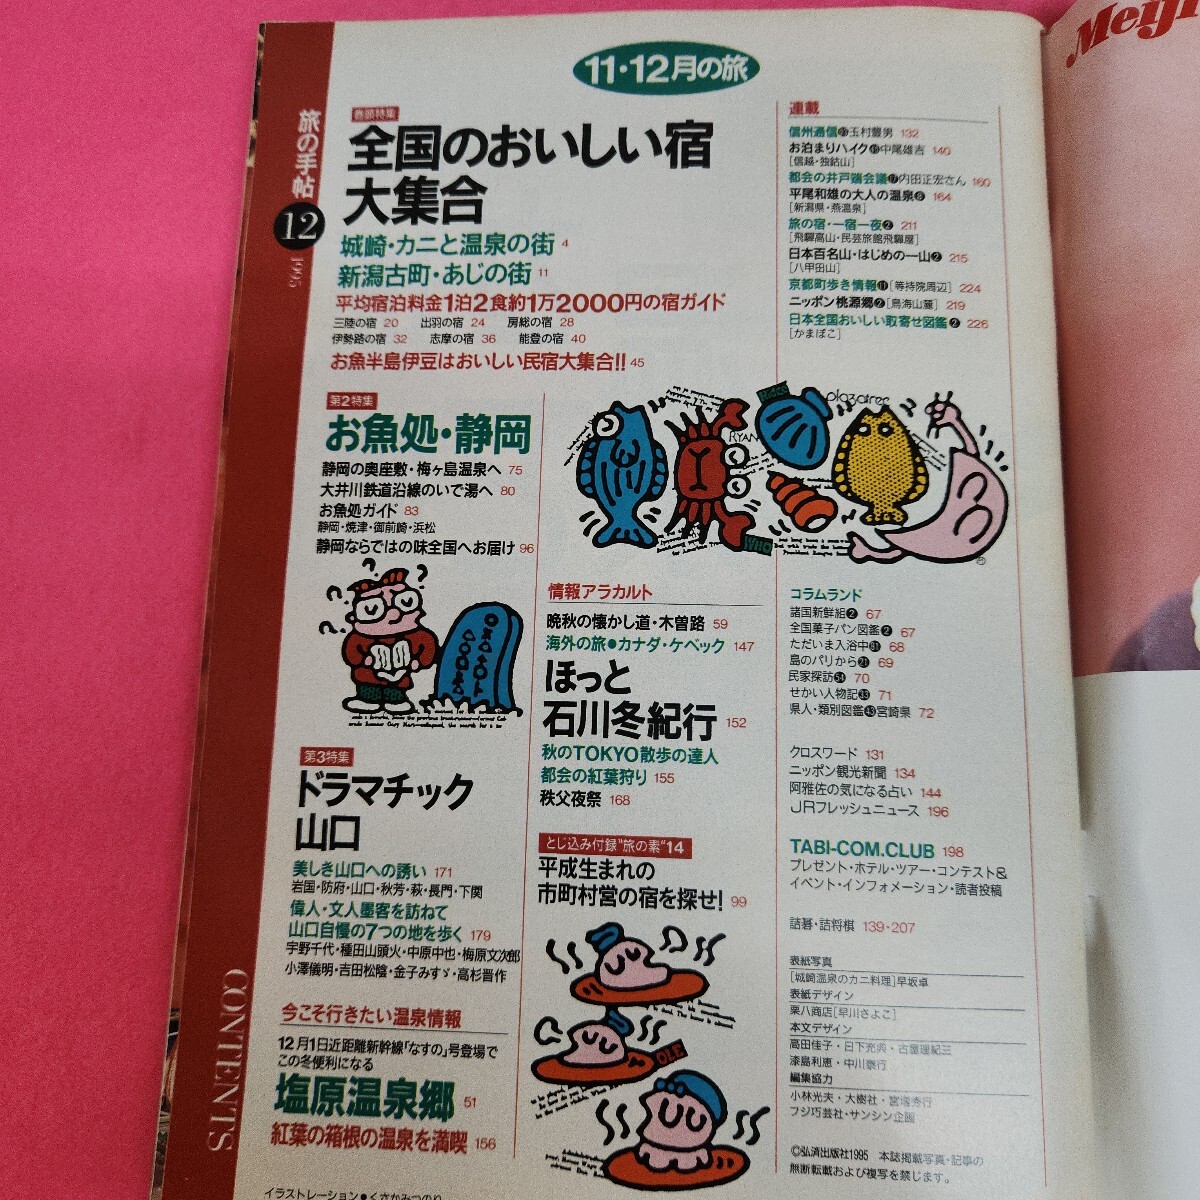 11・12月の旅
旅の手帖
12
1995
CONTENTS
巻頭特集
全国のおいしい宿
大集合
城崎・カニと温泉の街 4
新潟古町・あじの街 11
平均宿泊料金1泊2食約1万2000円の宿ガイド
三陸の宿 20 出羽の宿 24 房総の宿 28
伊勢路の宿 32 志摩の宿 36 能登の宿 40
お魚半島伊豆はおいしい民宿大集合!! 45
第2特集
お魚処・静岡
静岡の奥座敷・梅ヶ島温泉へ 75
大井川鉄道沿線のいで湯へ 80
お魚処ガイド 83
静岡・焼津・御前崎・浜松
静岡ならではの味全国へお届け 96
第3特集
ドラマチック
山口
美しき山口への誘い 171
岩国・防府・山口・秋芳・萩・長門・下関
偉人・文人墨客を訪ねて
山口自慢の7つの地を歩く 179
宇野千代・種田山頭火・中原中也・梅原文次郎
小澤儀明・吉田松陰・金子みすゞ・高杉晋作
今こそ行きたい温泉情報
12月1日近距離新幹線「なすの」号登場で
この冬便利になる
塩原温泉郷 51
紅葉の箱根の温泉を満喫 156
イラストレーション●くさかみつのり
情報アラカルト
晩秋の懐かし道・木曽路 59
海外の旅●カナダ・ケベック 147
ほっと
石川冬紀行 152
秋のTOKYO散歩の達人
都会の紅葉狩り 155
秩父夜祭 168
とじ込み付録"旅の素"14
平成生まれの
市町村営の宿を探せ! 99
連載
信州通信 玉村豊男 132
お泊まりハイク 中尾雄吉 140
[信越・独鈷山]
都会の井戸端会議⑰内田正宏さん 160
平尾和雄の大人の温泉⑧ 164
[新潟県・燕温泉]
旅の宿・一宿一夜② 211
[飛騨高山・民芸旅館飛騨屋]
日本百名山・はじめの一山② 215
[八甲田山]
京都町歩き情報⑪[等持院周辺] 224
ニッポン桃源郷②[鳥海山麓] 219
日本全国おいしい取寄せ図鑑② 226
[かまぼこ]
plazatree
RYAN
WHO
コラムランド
諸国新鮮組② 67
全国菓子パン図鑑② 67
ただいま入浴中81 68
島のパリから㉑ 69
民家探訪54 70
せかい人物記㉝ 71
県人・類別図鑑㊸宮崎県 72
クロスワード 131
ニッポン観光新聞 134
阿雅佐の気になる占い 144
JRフレッシュニュース 196
TABI-COM.CLUB 198
プレゼント・ホテル・ツアー・コンテスト&
イベント・インフォメーション・読者投稿
詰碁・詰将棋 139・207
表紙写真
[城崎温泉のカニ料理]早坂卓
表紙デザイン
栗八商店[早川さよこ]
本文デザイン
高田佳子・日下充典・古屋理紀三
漆島利恵・中川泰行
編集協力
小林光夫・大樹社・宮塚秀行
フジ巧芸社・サンシン企画
©弘済出版社1995 本誌掲載写真・記事の
無断転載および複写を禁じます。
OLE
Meiji